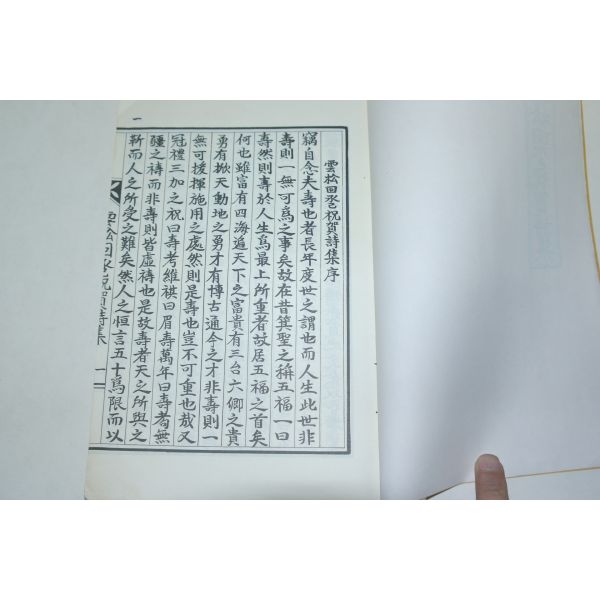 雲松回졸祝賀詩集序
竊自念夫壽也者長年度世之謂也而人生此世非
壽則一無可爲之事矣故在昔箕聖之稱五福一曰
壽然則壽於人生爲最上所重者故居五福之首矣
何也雖富有四海遍天下之富貴有三台六卿之貴
勇有掀天動地之勇才有博古通今之才非壽則一
無可援揮施用之處然則是壽也豈不可重也哉又
冠禮三加之祝曰壽考維祺曰眉壽萬年曰壽耇無
疆之禱而非壽則皆虛禱也是故壽者天之所與之
靳而人之所受之難矣然人之恒言五十爲限而以
雲松回 祝賀詩集
一
一